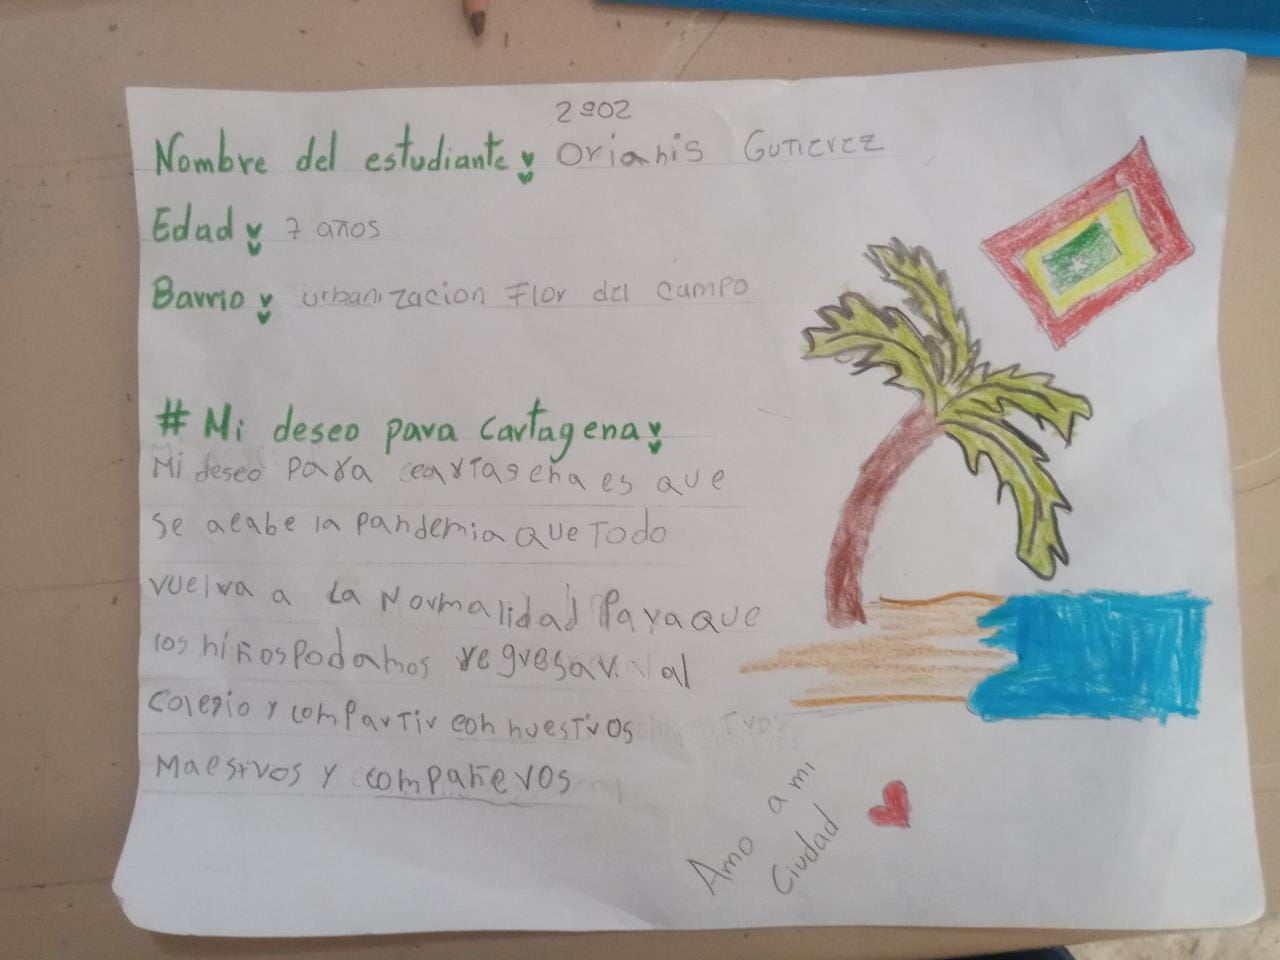 2º02
Nombre del estudiante: Orianis Gutierez
Edad: 7 años
Barrio: urbanizacion Flor del campo
# Mi deseo para Cartagena:
Mi deseo para cartagena es que
se acabe la pandemia que todo
vuelva a la Normalidad Para que
los niños podamos regresar al
colegio y compartir con nuestros
Maestros y compañeros
Amo a mi
Ciudad